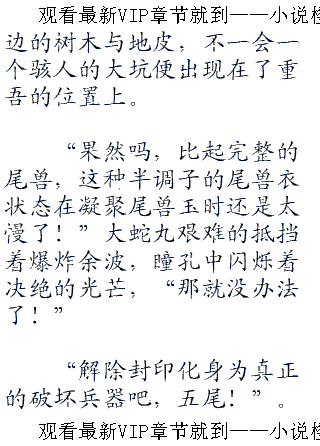 观看最新VIP章节就到——小说检
边的树木与地皮，不一会一
个骇人的大坑便出现在了重
吾的位置上。
“果然吗，比起完整的
尾兽，这种半调子的尾兽衣
状态在凝聚尾兽玉时还是太
慢了！”大蛇丸艰难的抵挡
着爆炸余波，瞳孔中闪烁着
决绝的光芒，“那就没办法
了！”
“解除封印化身为真正
的破坏兵器吧，五尾！”。
观看最新VIP章节就到——小说检